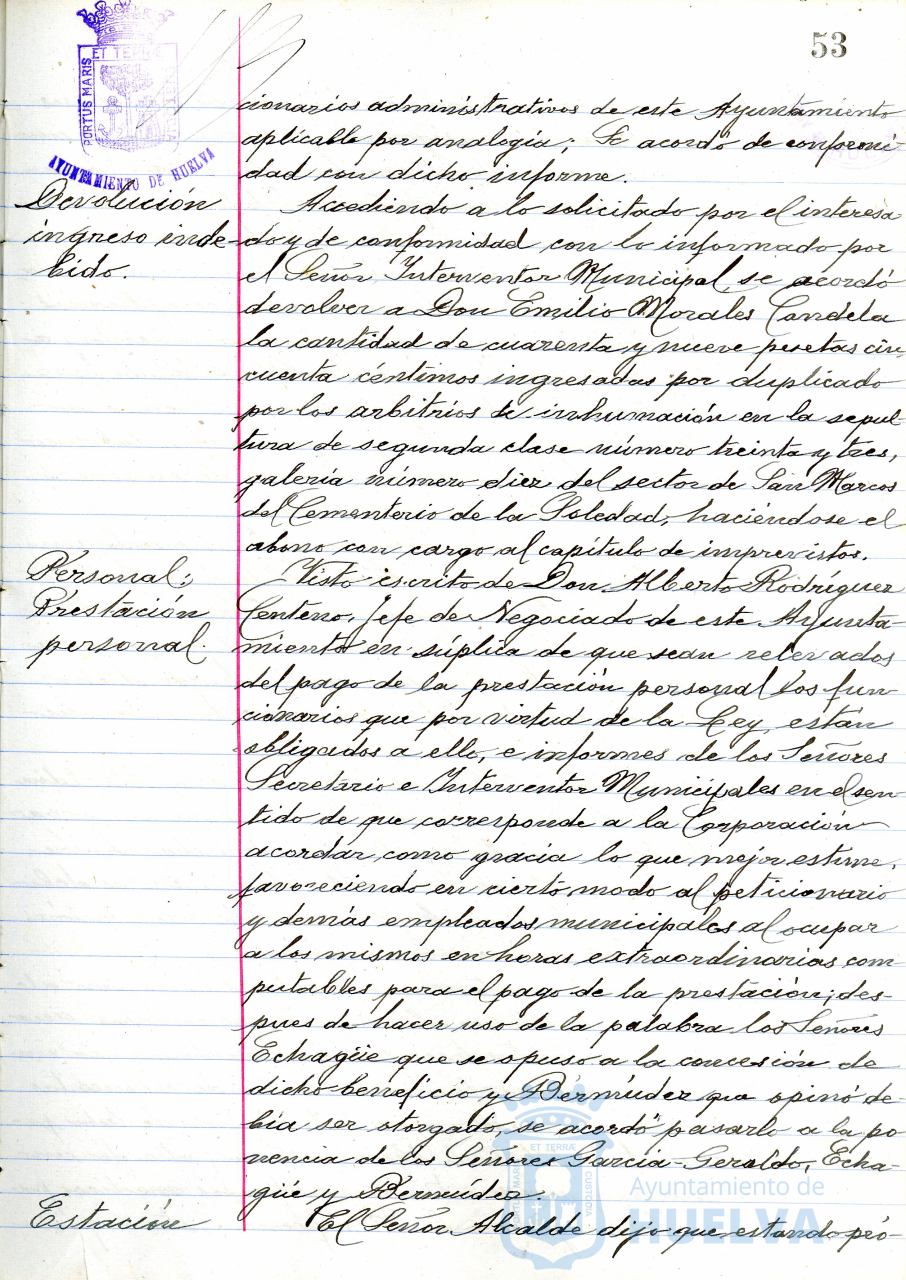 53
PORTUS MARIS
ET TERRÆ
AYUNTAMIENTO DE HUELVA
cionarios administrativos de este Ayuntamiento
aplicable por analogía; Se acordó de conformi-
dad con dicho informe.
Devolución
ingreso inde-
bido.
Accediendo a lo solicitado por el interesa
do y de conformidad con lo informado por
el Señor Interventor Municipal, se acordó
devolver a Don Emilio Morales Candela
la cantidad de cuarenta y nueve pesetas cin
cuenta céntimos ingresadas por duplicado
por los arbitrios de inhumación en la sepul-
tura de segunda clase número treinta y tres,
galería número diez del sector de San Marcos
del Cementerio de la Soledad, haciéndose el
abono con cargo al capítulo de imprevistos.
Personal;
Prestación
personal.
Visto escrito de Don Alberto Rodríguez
Centeno, Jefe de Negociado de este Ayunta-
miento en súplica de que sean relevados
del pago de la prestación personal los fun-
cionarios que por virtud de la Ley, están
obligados a ello, e informes de los Señores
Secretario e Interventor Municipales en el sen-
tido de que corresponde a la Corporación
acordar como gracia lo que mejor estime,
favoreciendo en cierto modo al peticionario
y demás empleados municipales al ocupar
a los mismos en horas extraordinarias com
putables para el pago de la prestación; des-
pues de hacer uso de la palabra los Señores
Echagüe que se opuso a la concesión de
dicho beneficio y Bermúdez que opinó de-
bía ser otorgado, se acordó pasarlo a la po
nencia de los Señores García-Geraldo, Echa-
güe y Bermúdez.
Estación
El Señor Alcalde dijo que estando pró-
ET TERRÆ
CUSTODIA
Ayuntamiento de
HUELVA